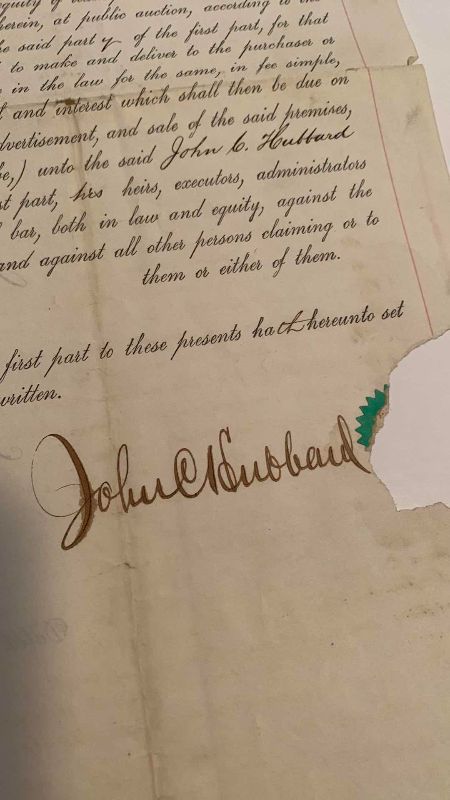 equity of
herein, at public auction, according to
said party of the first part, for that
to make and deliver to the purchaser or
in the law for the same, in fee simple,
and interest which shall then be due on
dvertisement, and sale of the said premises,
be,) unto the said John C. Hubbard
st part, his heirs, executors, administrators
bar, both in law and equity, against the
and against all other persons claiming or to
them or either of them.
first part to these presents hath hereunto set
written.
John C Hubbard